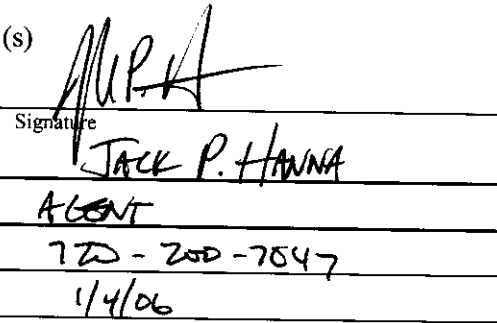 (s)
Signature
JACK P. HANNA
AGENT
720-200-7047
1/4/06